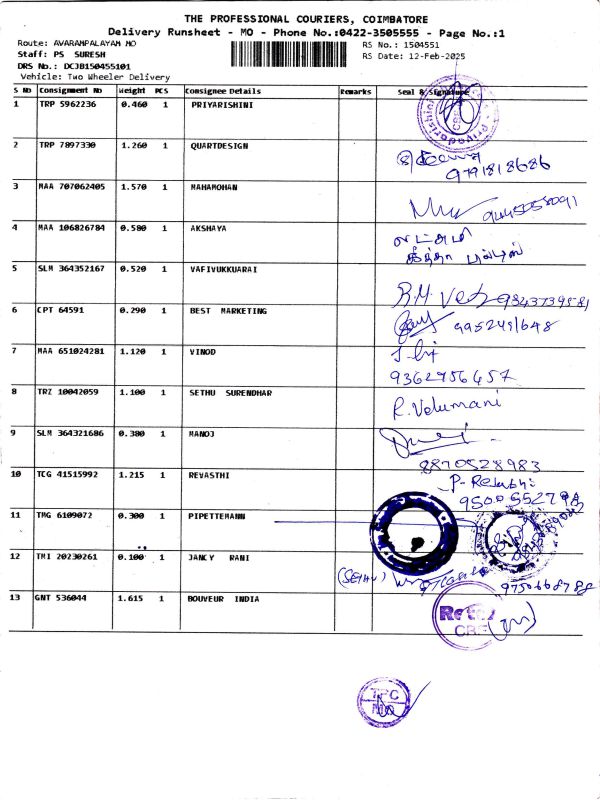 THE PROFESSIONAL COURIERS, COIMBATORE
Delivery Runsheet - MO - Phone No.:0422-3505555 - Page No.:1
Route: AVARAMPALAYAM MO
RS No.: 1504551
Staff: PS SURESH
RS Date: 12-Feb-2025
DRS No.: DCJB150455101
Vehicle: Two Wheeler Delivery
S No Consignment No Weight PCS Consignee Details Remarks Seal & Signature
1 TRP 5962236 0.460 1 PRIYARISHINI
2 TRP 7897330 1.260 1 QUARTDESIGN
9791818686
3 MAA 707062405 1.570 1 MAHAMOHAN
9445058091
4 MAA 106826784 0.580 1 AKSHAYA
5 SLM 364352167 0.520 1 VAFIVUKKUARAI
9343739581
6 CPT 64591 0.290 1 BEST MARKETING
9952491648
7 MAA 651024281 1.120 1 VINOD
9362756457
8 TRZ 10042059 1.100 1 SETHU SURENDHAR
R. Velumani
9 SLM 364321686 0.380 1 MANOJ
8870528983
10 TCG 41515992 1.215 1 REVASTHI
11 TMG 6109072 0.300 1 PIPETTEMANN
12 TMI 20230261 0.100 1 JANCY RANI
(SETHU)
9750668788
13 GNT 536044 1.615 1 BOUVEUR INDIA
TPC
MO